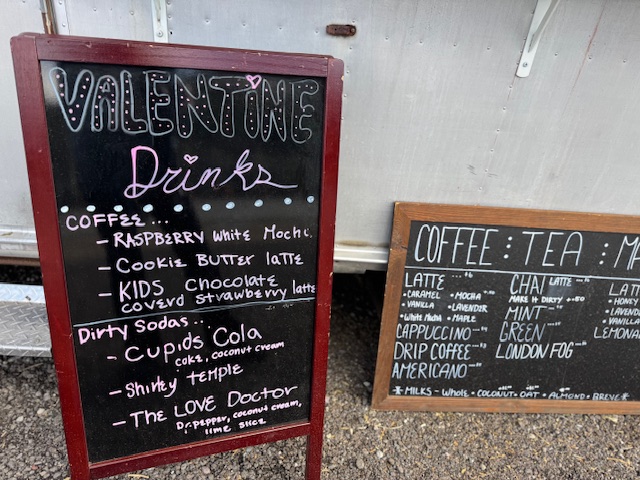 VALENTINE
Drinks
COFFEE...
- RASPBERRY White Mocha
- Cookie BUTTER latte
- KIDS Chocolate
coverd strawberry latte
Dirty Sodas...
- Cupids Cola
coke, coconut cream
- Shirley temple
- The LOVE Doctor
Dr. pepper, coconut cream,
lime slice
COFFEE : TEA : MA
LATTE
• CARAMEL • MOCHA
• VANILLA • LAVENDER
• White Mocha • MAPLE
CAPPUCCINO
DRIP COFFEE
AMERICANO
CHAI LATTE
MAKE IT DIRTY
MINT
GREEN
LONDON FOG
LATT
• HONEY
• LAVEND
• VANILLA
LEMONA
* MILKS - Whole • COCONUT • OAT • ALMOND • BREVE *